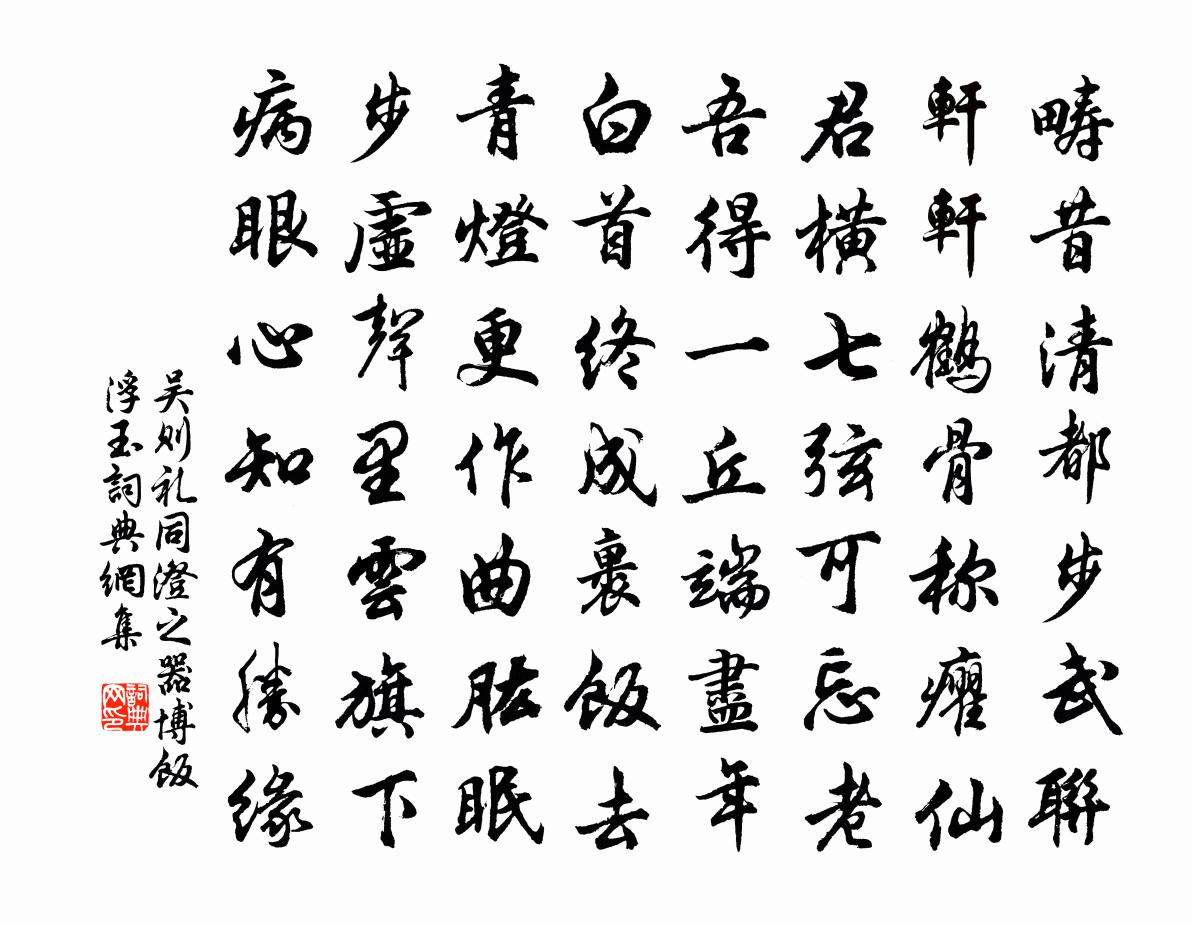 疇昔清都步武聯
軒軒鶴骨称癯仙
君横七弦可忘老
吾得一丘端盡年
白首终成裹飯去
青燈更作曲肱眠
步虛聲里雲旗下
病眼心知有勝緣
吴则礼同澄之器博飯
浮玉詞典網集
詞典网印